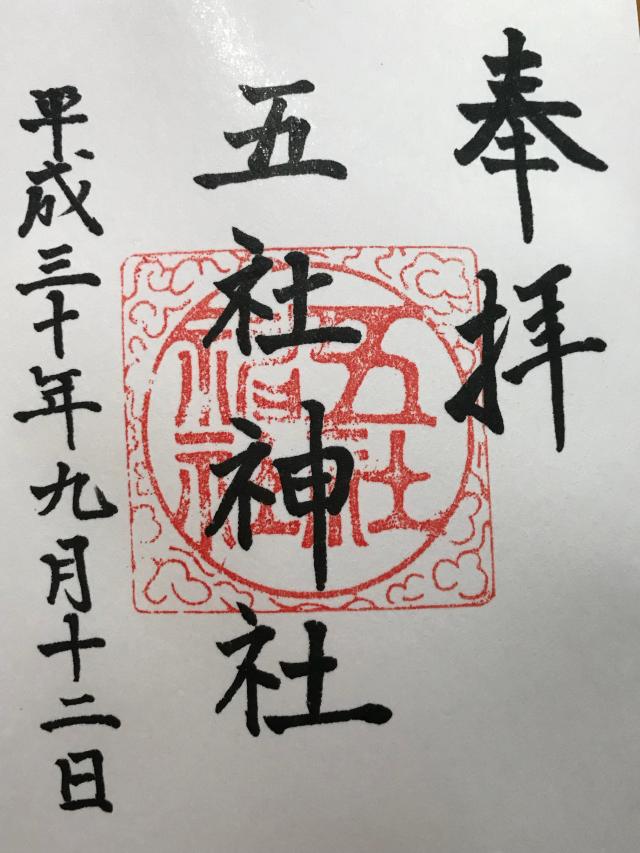 奉拝
五社神社
平成三十年九月十二日
五社
神社